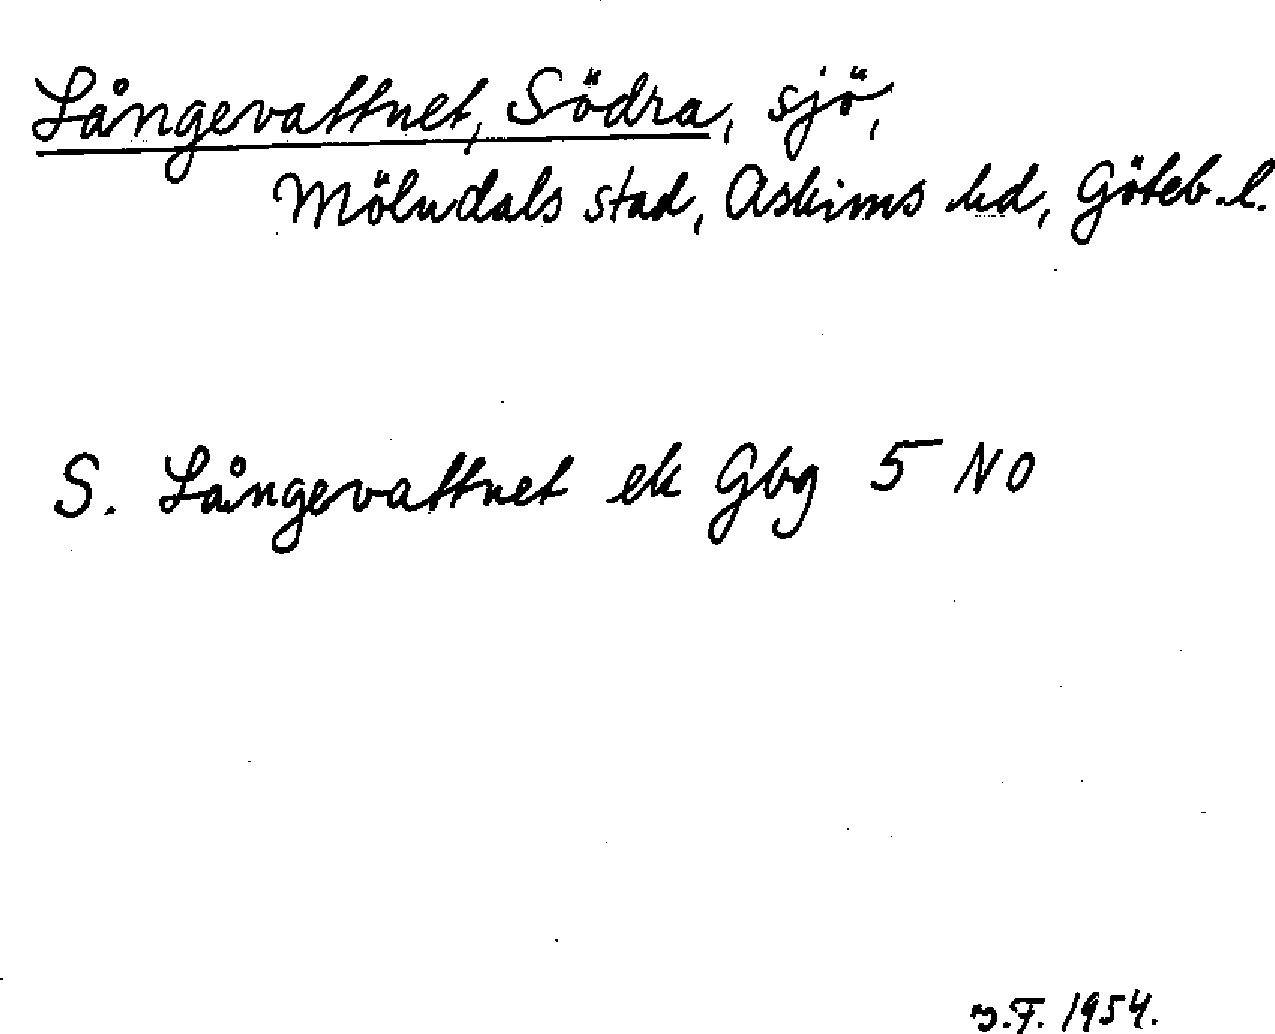 Långevattnet, Södra, sjö,
Mölndals stad, Askims hd, Göteb. l.
S. Långevattnet ek Gbg 5 NO
F. 1954.